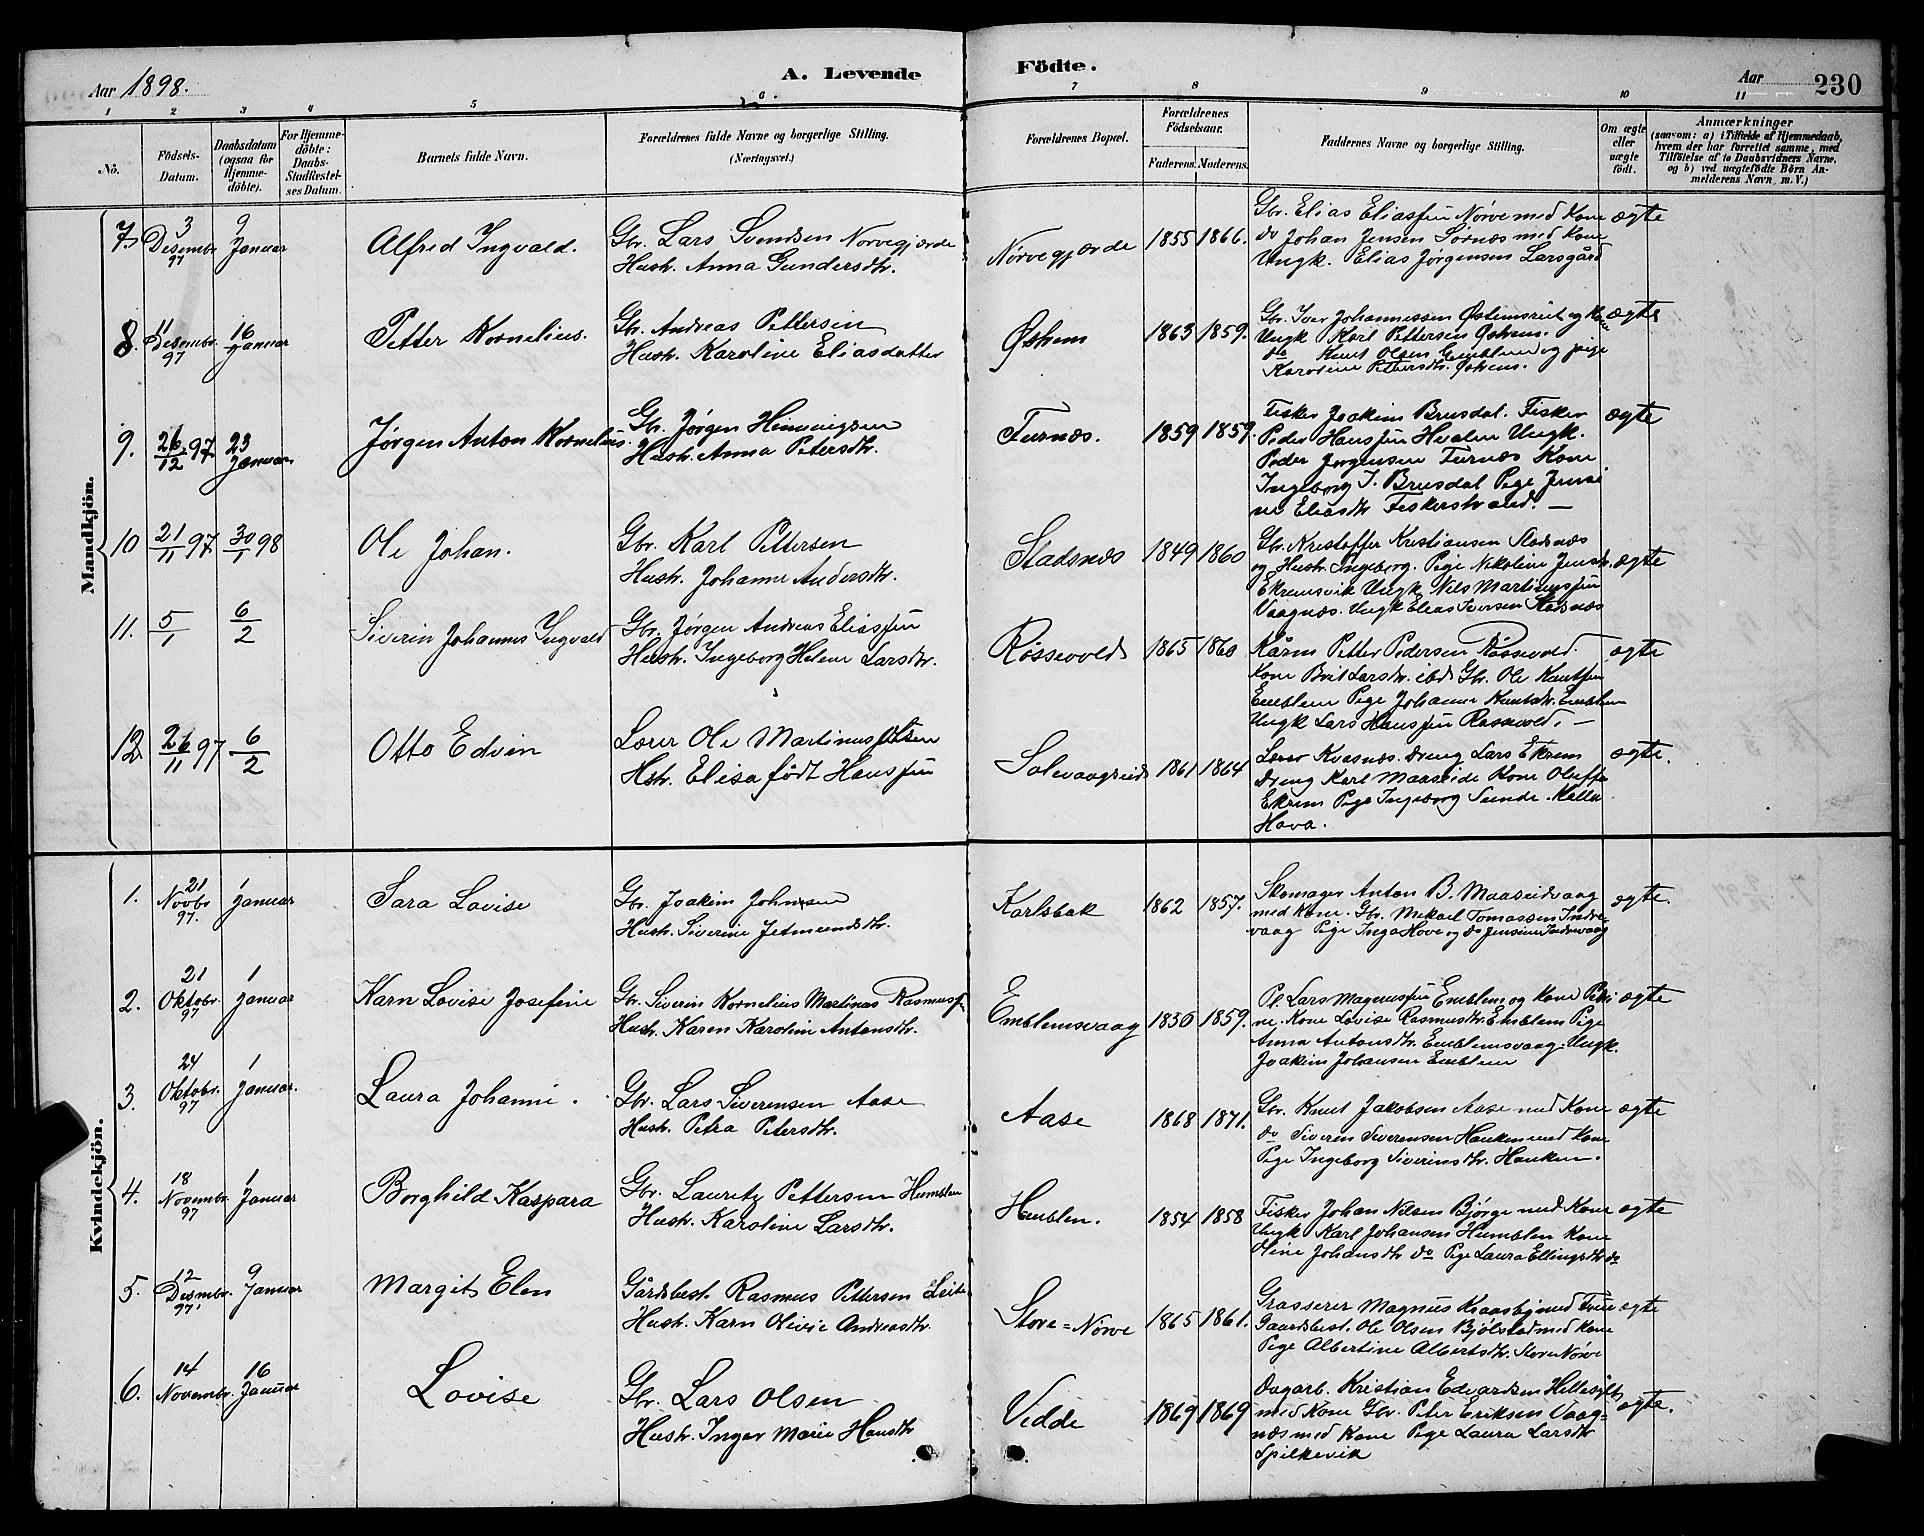 Aar 1898.
A. Levende
Födte.
Aar
230
1 2 3 4 5 6 7 8 9 10 11
No.
Födsels-Datum.
Daabsdatum (ogsaa for Hjemme-döbte).
For Hjemme-döbte: Daabs-Stadfæstel-ses Datum.
Barnets fulde Navn.
Forældrenes fulde Navne og borgerlige Stilling. (Næringsvei.)
Forældrenes Bopæl.
Forældrenes Födselsaar.
Faderens. Moderens.
Faddernes Navne og borgerlige Stilling.
Om ægte eller uægte født.
Anmærkninger
(saasom: a) i Tilfælde af Hjemmedaab, hvem der har forrettet samme, med Tilföielse af to Daabsvidners Navne. og b) ved uægtefödte Börn An-melderens Navn, m. V.)
Mandkjön.
7. 3 Desembr 97 9 Januar Alfred Ingvald. Gbr. Lars Svendsen Norvegjærde
Hustr. Anna Gundersdtr.
Nørvegjærde 1855 1866.
Gbr. Elias Eliassen Nørve med Kone
do Johan Jensen Sørnæs med Kone
Ungk. Elias Jørgensen Larsgård
ægte
8. 11 Desembr 97 16 Januar Petter Kornelius. Gbr. Andreas Pettersen
Hustr. Karoline Eliasdatter
Østrem 1863 1859.
Gbr. Iver Johannessen og Kone
Ungk Karl Pettersen
do Knut Olsen Emblem og pige
Karoline Pettersdtr.
ægte
9. 26/12 97 23 Januar Jørgen Anton Kornelius. Gbr. Jørgen
Hustr. Anna Petersdtr.
Furnæs. 1859 1859.
Fisker Joakim Brusdal. Fisker
Peder Hanssen Ungk.
Peder Jørgensen Furnæs Kone
Ingeborg J. Brusdal Pige
Eliasdtr Fiskerstrand. —
ægte
10 21/11 97 30/1 98 Ole Johan. Gbr. Karl Pettersen
Hustr. Johanne Andersdtr.
Stadsnæs 1849 1860
Gbr. Kristoffer Kristiansen Stadsnæs
og Hustr. Ingeborg. Pige Nikoline
Ekremsvik Ungk Nils Martinussen
Vaagnæs. Ungk Elias Iversen Stadsnæs
ægte
11. 5/1 6/2 Siverin Johannes Ingvald Gbr. Jørgen Andreas Eliassen
Hustr. Ingeborg Helene Larsdtr.
Røssevold 1865 1860
Petter Pedersen Røssevold.
Kone Brit Larsdtr. ibd. Gbr. Ole Knutsen
Emblem Pige Johanne Knutsdtr. Emblem
Ungk Lars Hanssen Røssevold. —
ægte
12 26/11 97 6/2 Otto Edvin Lærer Ole Martinus Olsen
Hstr. Elisa født Hanssen
Solevaagseid 1861 1864
Lærer Kvasnæs. Dreng Lars Ekrem
Dreng Karl Maaseide Kone
Ekrem Pige Ingeborg Sunde.
ægte.
Kvindekjön.
1. 21 Novbr 97. 1 Januar Sara Lovise Gbr. Joakim Johnsen
Hustr. Siverine Jetmundsdtr.
Karlsbak 1862 1857.
Skomager Anton B. Maaseidvaag
med Kone. Gbr. Mikael Tomassen Indre-
vaag Pige Inga Hove og do Jensine Indrevaag
ægte.
2. 21 Oktobr. 97 1 Januar Karn Lovise Josefine Gbr. Siverin Kornelius Martinas Rasmuss.
Hustr. Karen Karoline Antonsdtr.
Emblemsvaag 1856 1859.
Lars Magnussen Emblem og Kone Petri
ne. Kone Lovise Rasmusdtr. Emblem Pige
Anna Antonsdtr. Emblemsvaag. Ungk.
Joakim Johansen Emblem
ægte
3. 24 Oktobr. 97 1 Januar. Laura Johanne. Gbr. Lars Siverensen Aase
Hustr. Petra Petersdtr.
Aase 1868 1871.
Gbr. Knut Jakobsen Aase med Kone
do Siveren Siverensen Hauken med Kone
Pige Ingeborg Siverinsdtr. Hauken.
ægte
4. 18 Novembr. 97 1 Januar Borghild Kaspara Gbr. Lauritz Pettersen Humblen
Hustr. Karoline Larsdtr.
Humblen. 1854 1858
Fisker Johan Nilsen Bjørge med Kone
Ungk Karl Johansen Humblen Kone
Oline Johansdtr do Pige Laura Ellingsdtr do
ægte
5. 12 Desmbr. 97. 9 Januar Margit Elen Gårdsbest. Rasmus Pettersen
Hustr. Karn Olivie Andreasdtr.
Store=Nørve 1865 1861.
Grosserer Magnus Kraasby med Frue
Gaardsbest. Ole Olsen Bjølstad med Kone
Pige Albertine Albertsdtr. Store Nørve
ægte
6. 14 Novembr. 16 Januar Lovise Gbr. Lars Olsen
Hustr. Inger Marie Hansdtr
Vedde 1869 1869
Dagarb. Kristian Edvardsen Hellesylt
med Kone Gbr. Peter Eriksen Vaag=
næs med Kone Pige Laura Larsdtr
Spilkevik
ægte.